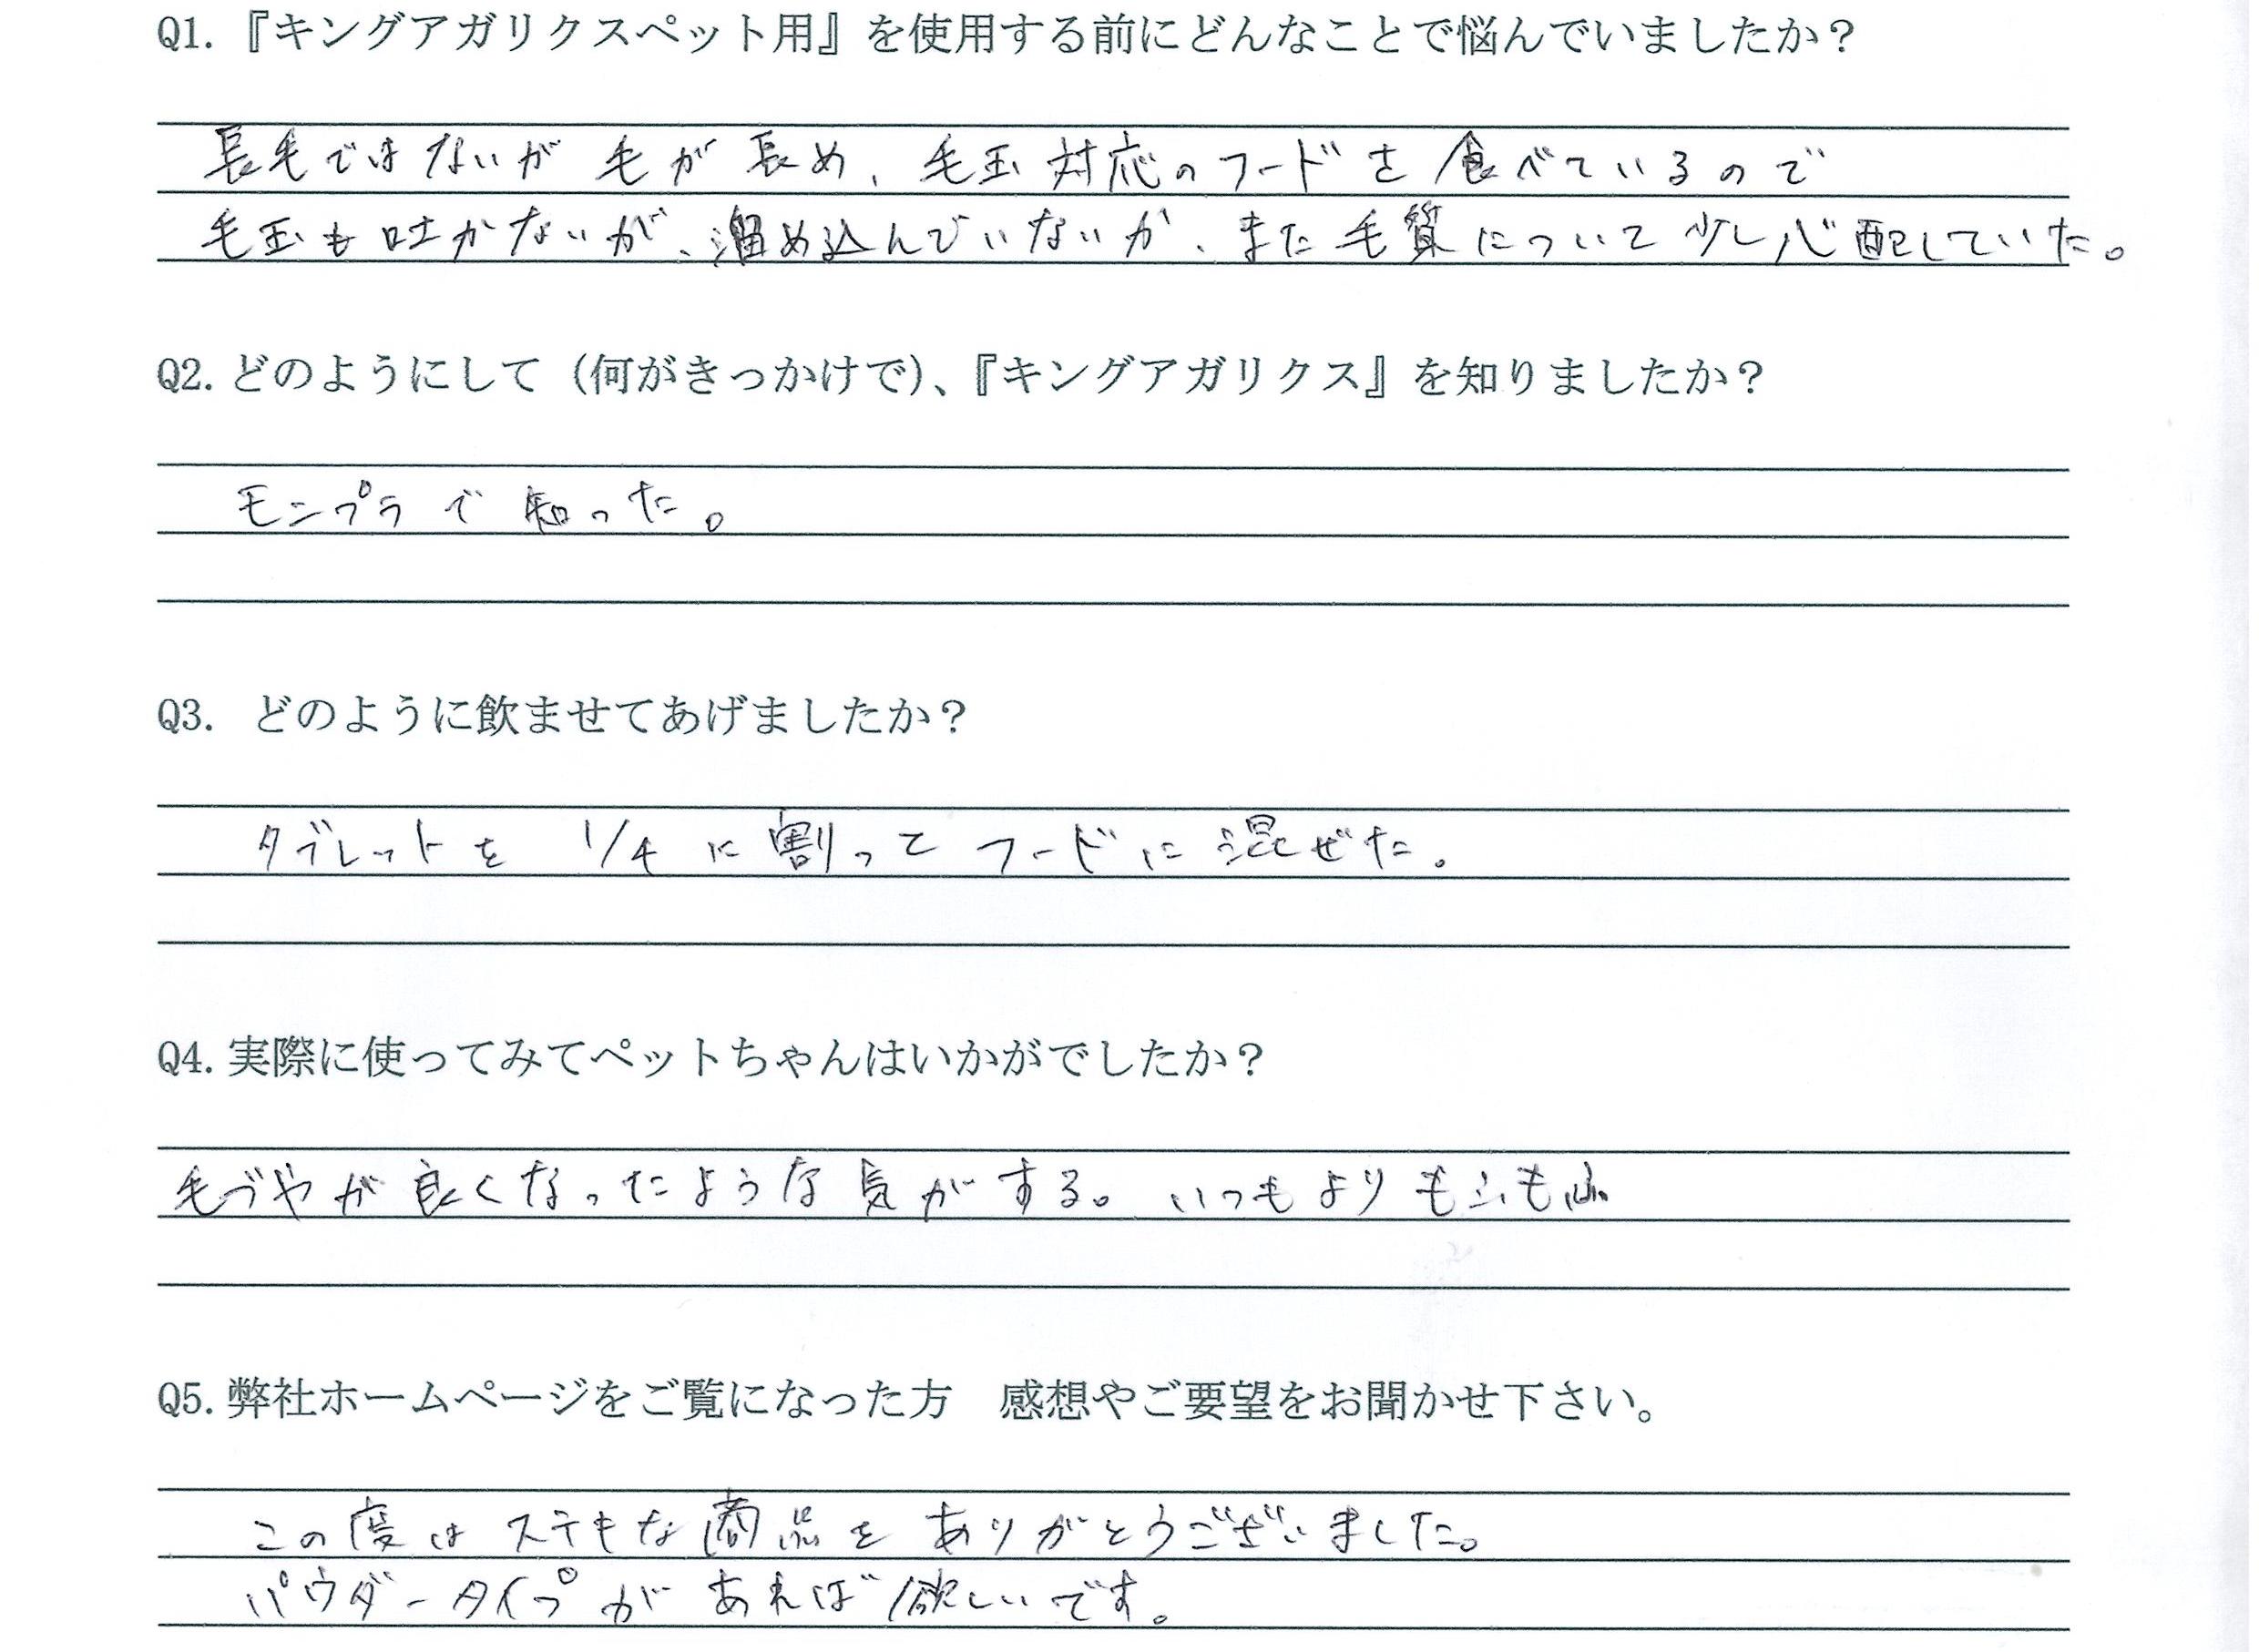 Q1.『キングアガリクスペット用』を使用する前にどんなことで悩んでいましたか？
長毛ではないが毛が長め、毛玉対応のフードを食べているので
毛玉も吐かないが、溜め込んでいないか、また毛質について少し心配していた。
Q2.どのようにして（何がきっかけで）、『キングアガリクス』を知りましたか？
モンプラで知った。
Q3. どのように飲ませてあげましたか？
タブレットを 1/4 に割ってフードに混ぜた。
Q4.実際に使ってみてペットちゃんはいかがでしたか？
毛づやが良くなったような気がする。いつもよりもふもふ
Q5.弊社ホームページをご覧になった方　感想やご要望をお聞かせ下さい。
この度はステキな商品をありがとうございました。
パウダータイプがあれば欲しいです。